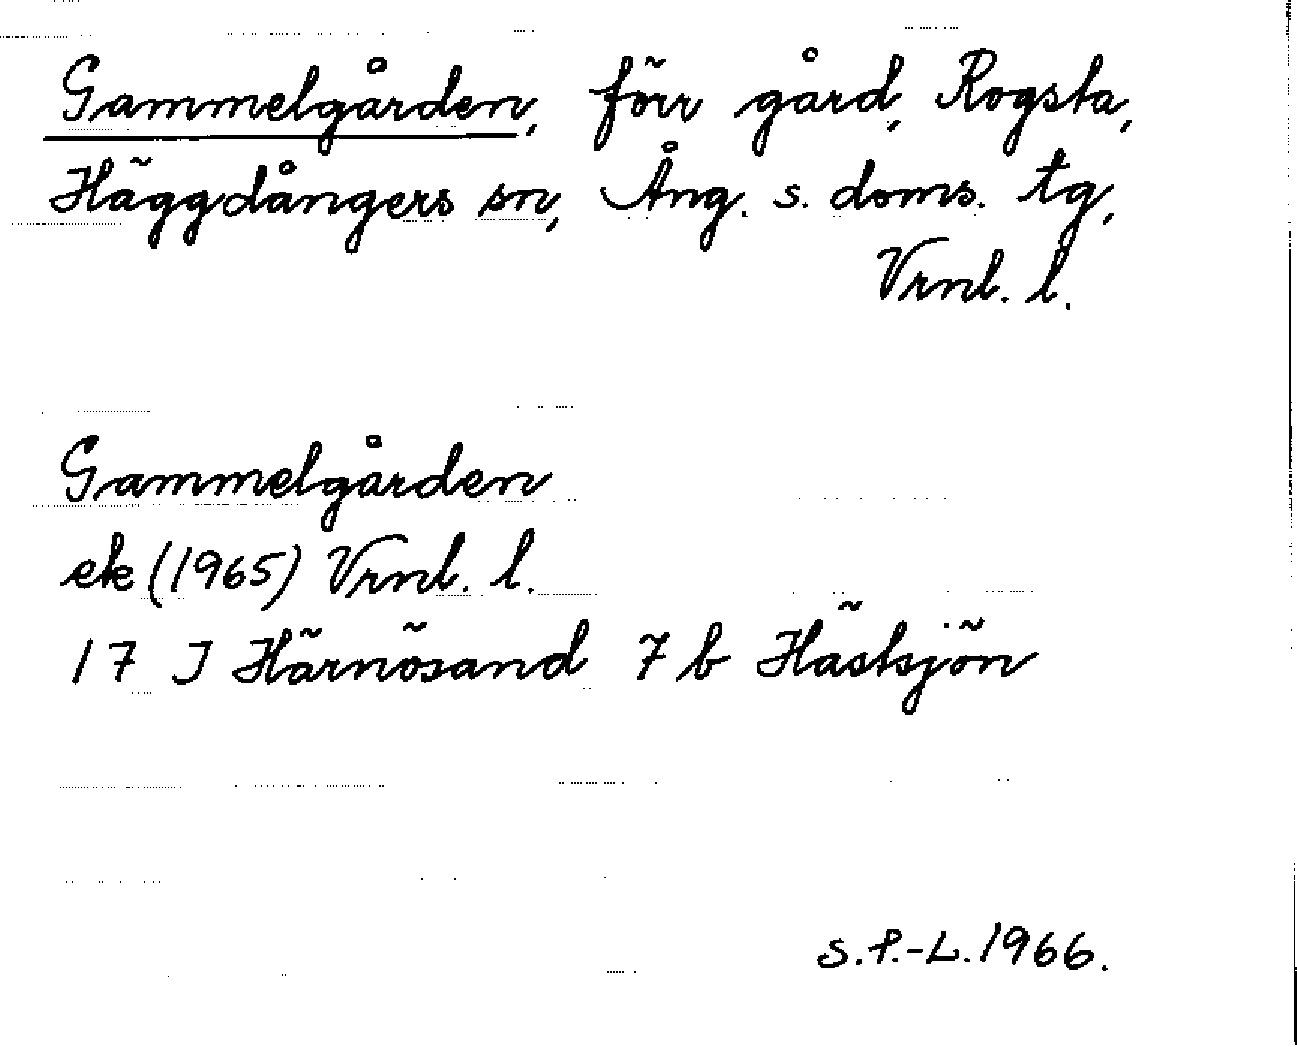 Gammelgården, förr gård, Rogsta,
Häggdångers sn, Ång. s. doms. tg,
Vrnl. l.
Gammelgården
ek (1965) Vrnl. l.
17 J Härnösand 7 b Hästsjön
S.P.-L. 1966.